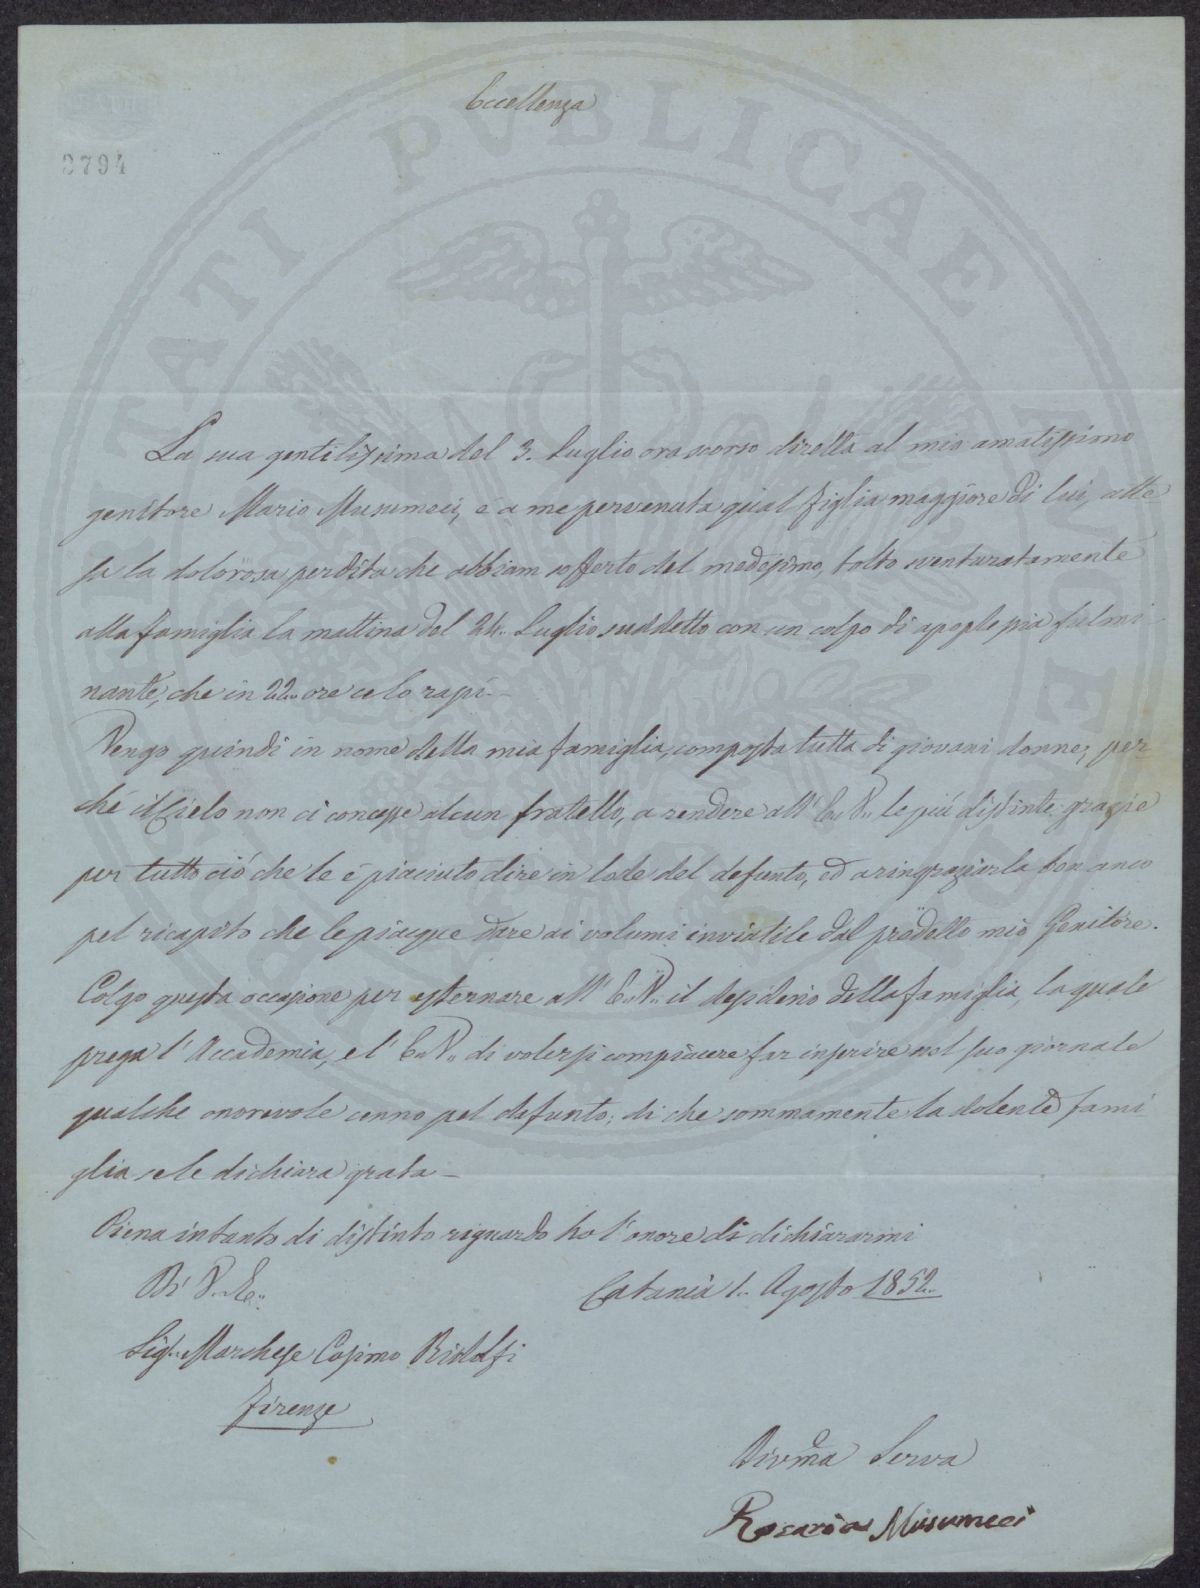 Eccellenza
2794
La sua gentilissima del 3. Luglio ora scorso diretta al mio amatissimo
genitore Mario Musumeci, è a me pervenuta qual figlia maggiore di lui, atte
sa la dolorosa perdita che abbiam sofferto del medesimo, tolto sventuratamente
alla famiglia la mattina del 24. Luglio suddetto con un colpo di apoplepia fulmi
nante, che in 22 ore ce lo rapì.–
Vengo quindi in nome della mia famiglia, composta tutta di giovani donne, per
ché il Cielo non ci concesse alcun fratello, a rendere all' E. V. le più distinte grazie
per tutto ciò che le è piaciuto dire in lode del defunto, ed a ringraziarla ben anco
pel ricapito che le piacque dare ai volumi inviatile dal prédetto mio Genitore.
Colgo questa occasione per esternare all' E. V. il desiderio della famiglia, la quale
prega l' Accademia, e l' E. V. di volersi compiacere far inserire nel suo giornale
qualche onorevole cenno pel defunto; di che sommamente la dolente fami
glia se le dichiara grata –
Piena intanto di distinto riguardo ho l'onore di dichiararmi
Di V. E.
Catania 1. Agosto 1852.
Sig. Marchese Cosimo Ridolfi
Firenze
Divma Serva
Rosaria Musumeci
PUBLICAE